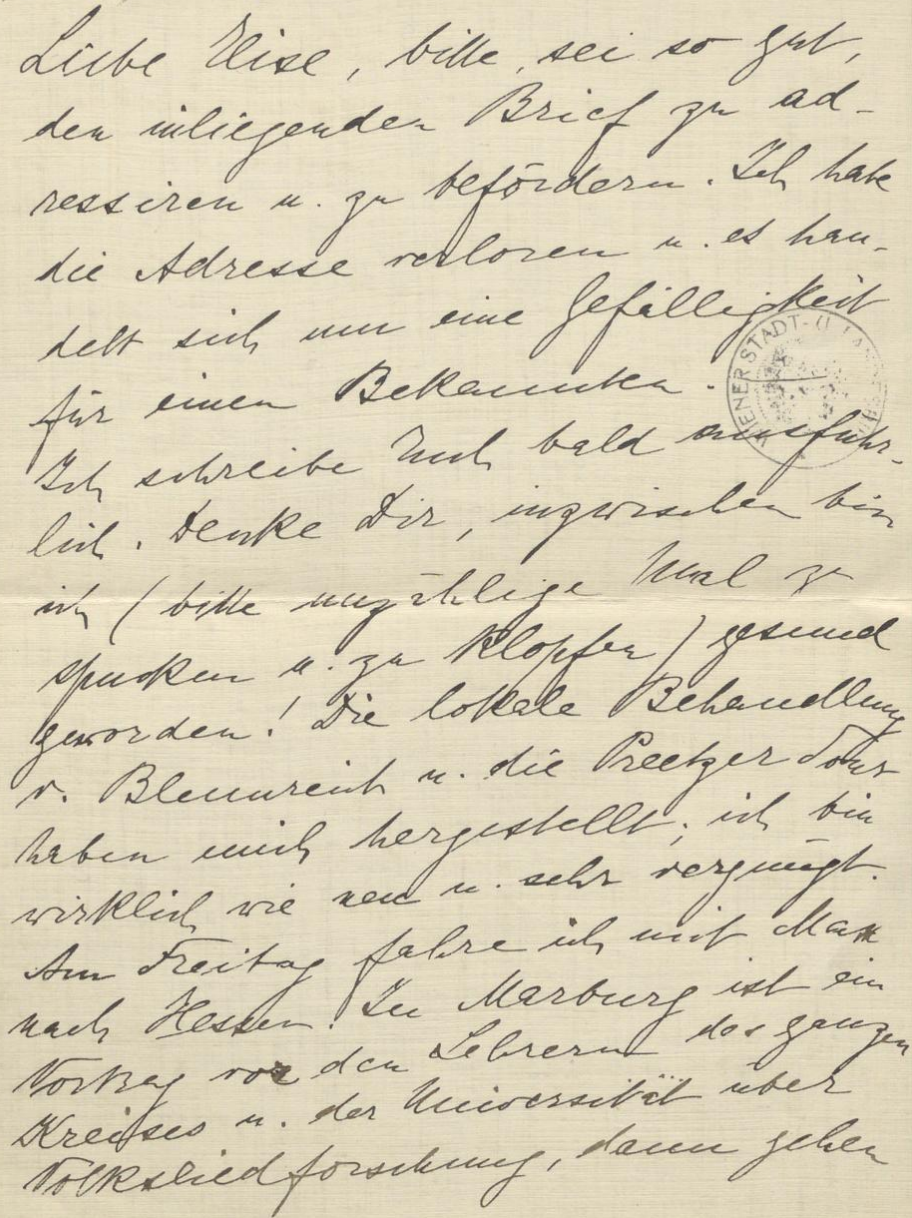 Liebe Elise, bitte, sei so gut,
den inliegenden Brief zu ad-
ressiren u. zu befördern. Ich habe
die Adresse verloren u. es han-
delt sich um eine Gefälligkeit
für einen Bekannten.
WIENER STADT-
Ich schreibe Euch bald ausführ-
lich. Denke Dir, inzwischen bin
ich (bitte unzählige Mal zu
spucken u. zu klopfen) gesund
geworden! Die lokale Behandlung
v. Blumreich u. die Preetzer Tour
haben mich hergestellt; ich bin
wirklich wie neu u. sehr vergnügt.
Am Freitag fahre ich mit Max
nach Hessen. In Marburg ist ein
Vortrag vor den Lehrern des ganzen
Kreises u. der Universität über
Volksliedforschung, dann gehen